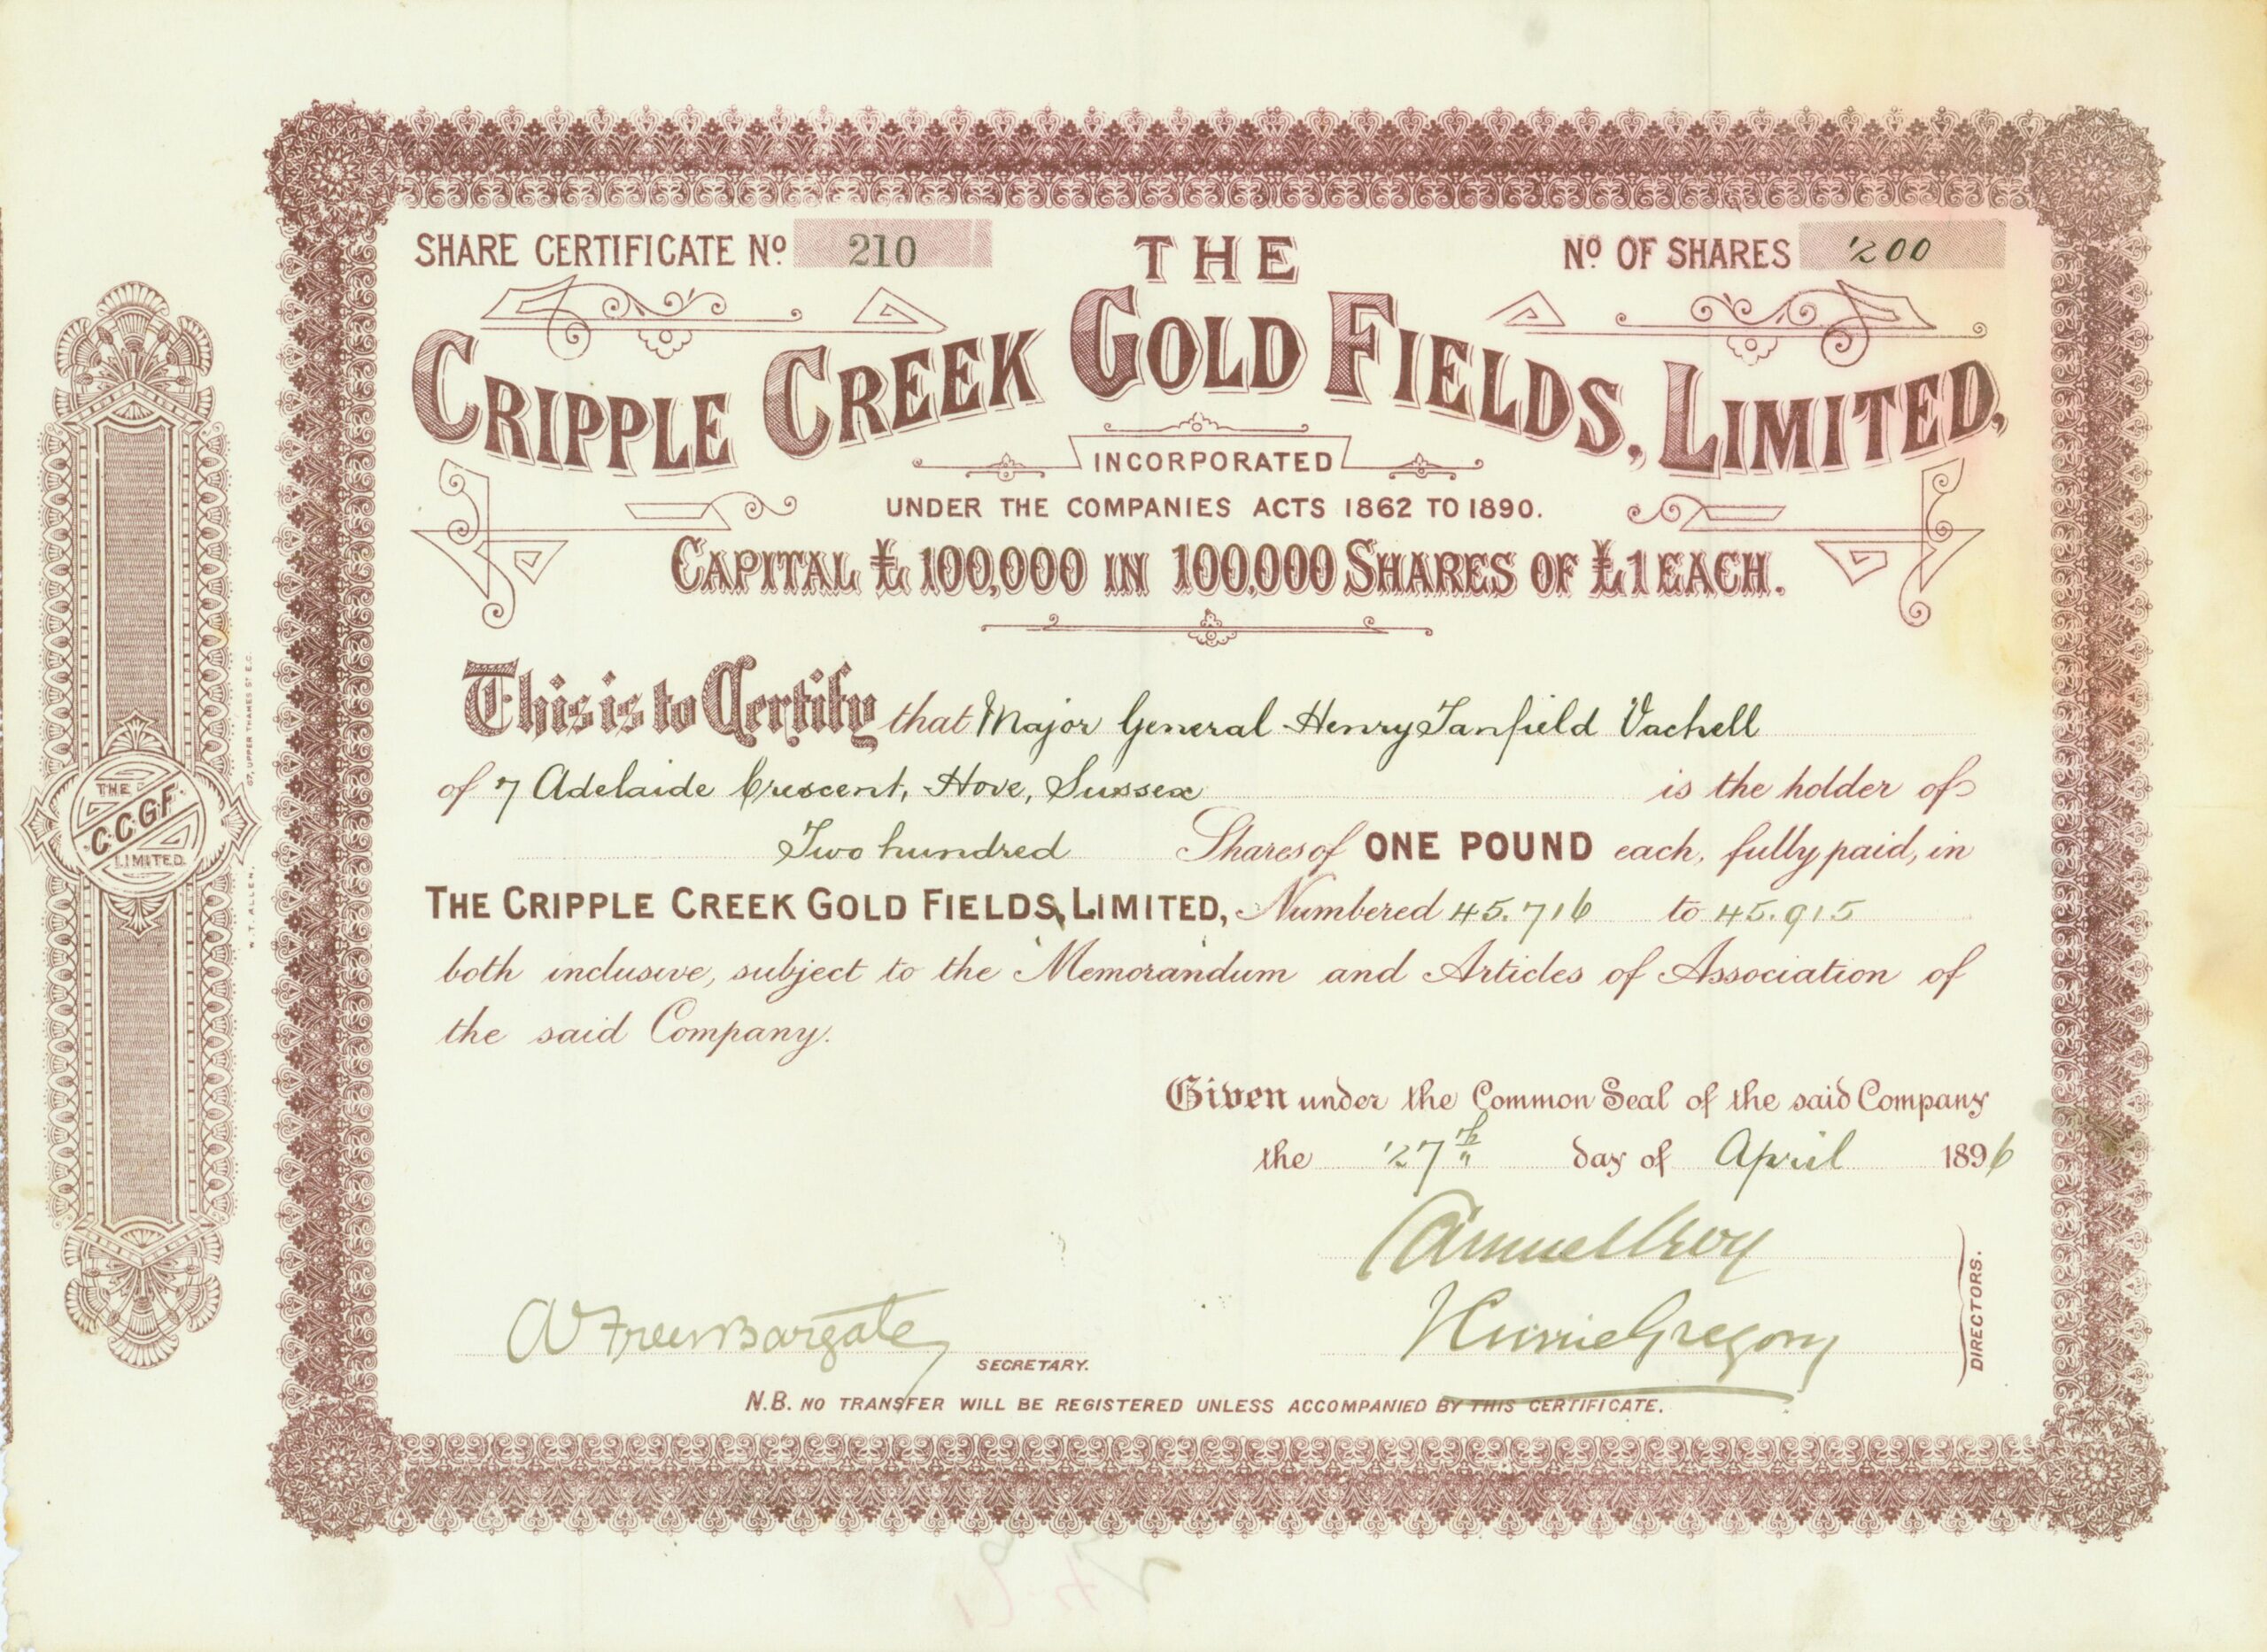 SHARE CERTIFICATE Nº 210
Nº OF SHARES 200
THE
CRIPPLE CREEK GOLD FIELDS, LIMITED,
INCORPORATED
UNDER THE COMPANIES ACTS 1862 TO 1890.
CAPITAL £100,000 IN 100,000 SHARES OF £1 EACH.
This is to Certify that Major General Henry Tanfield Vachell
of 7 Adelaide Crescent, Hove, Sussex is the holder of
Two hundred Shares of ONE POUND each, fully paid, in
THE CRIPPLE CREEK GOLD FIELDS, LIMITED, Numbered 45.716 to 45.915
both inclusive, subject to the Memorandum and Articles of Association of
the said Company.
Given under the Common Seal of the said Company
the 27th day of April 1896
Gregory
DIRECTORS.
SECRETARY.
N.B. NO TRANSFER WILL BE REGISTERED UNLESS ACCOMPANIED BY THIS CERTIFICATE.
THE
C.C.G.F.
LIMITED.
W. T. ALLEN, 67, UPPER THAMES ST E.C.